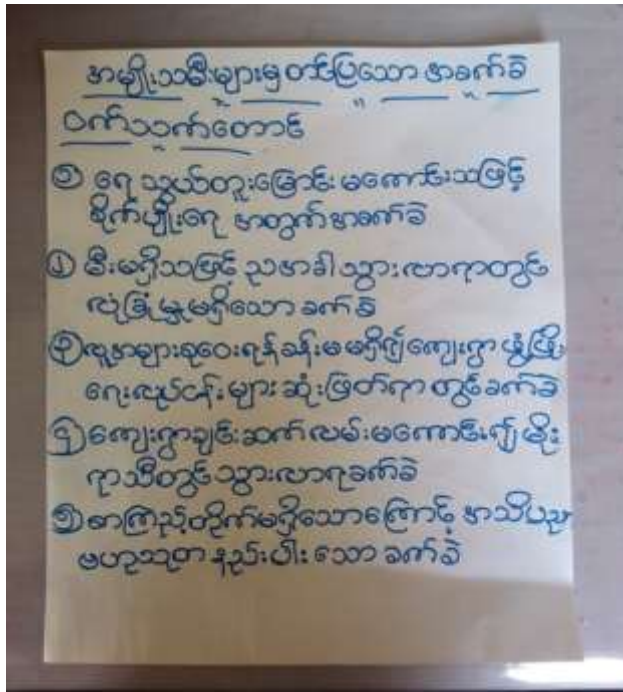 အမျိုးသမီးများမှ တင်ပြသော အခက်ခဲ
ဝက်သက်တောင်
၁ ရေ သွယ်တူးမြောင်း မကောင်းသဖြင့်
စိုက်ပျိုးရေ အတွက်အခက်ခဲ
၂ မီးမရှိသဖြင့် ညအခါ သွားလာရာတွင်
လုံခြုံမှုမရှိသော ခက်ခဲ
၃ လူအများစုဝေးရန်ခန်းမ မရှိ၍ ကျေးရွာ ဖွံ့ဖြိုး
ရေးလုပ်ငန်းများ ဆုံးဖြတ်ရာ တွင်ခက်ခဲ
၄ ကျေးရွာချင်းဆက်လမ်းမကောင်း၍ မိုး
ရာသီတွင် သွားလာရခက်ခဲ
၅ စာကြည့်တိုက်မရှိသောကြောင့် အသိပညာ
ဗဟုသုတ နည်းပါး သော ခက်ခဲ